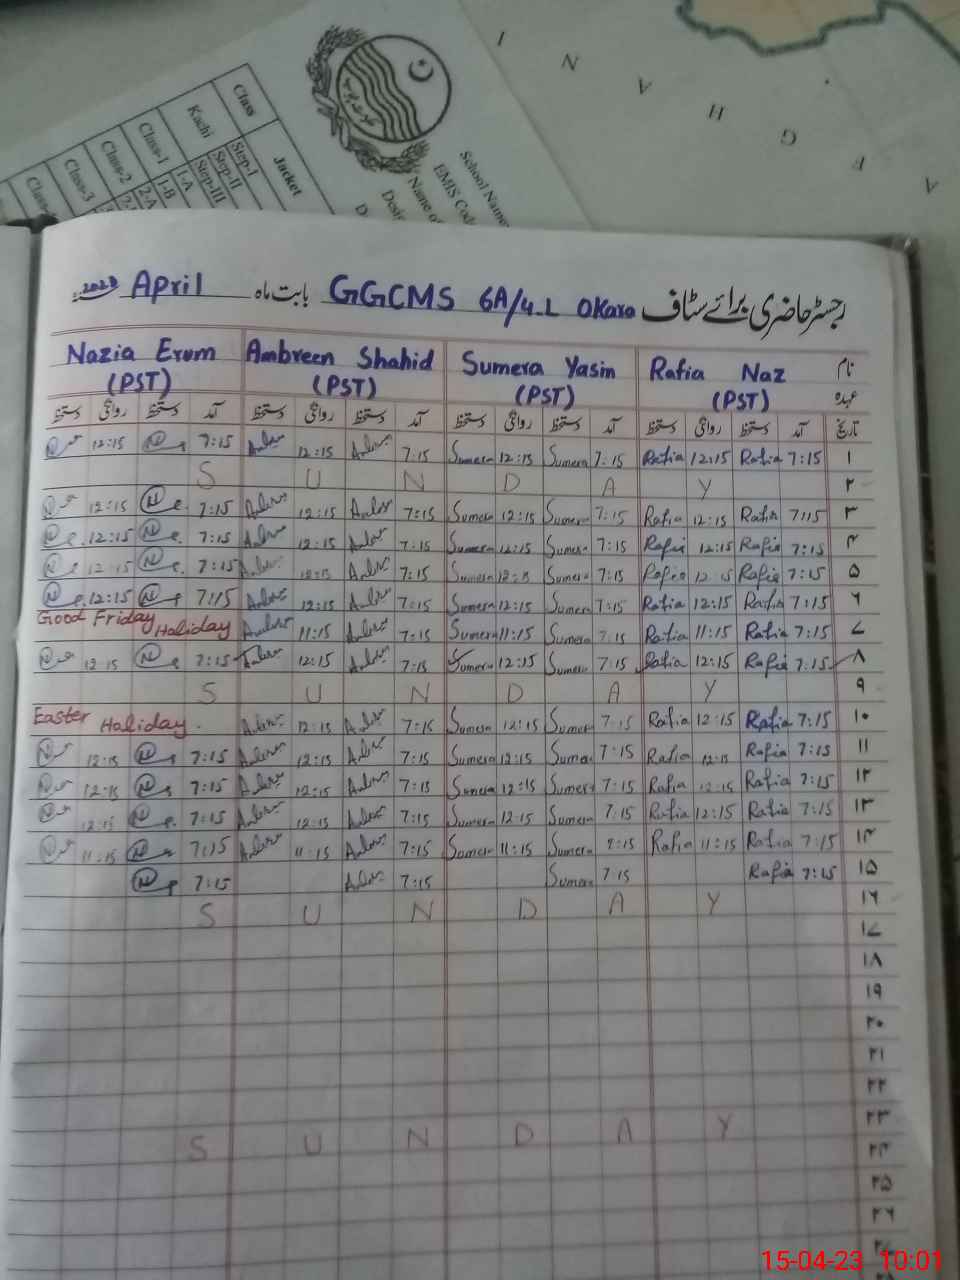 A F G H A N I
School Name
EMIS Code
Name of
Class Jacket
Kachi Step-I
Step-II
Step-III
Class-1 1-A
1-B
Class-2 2-A
Class-3
رجسٹر حاضری برائے سٹاف GGCMS 6A/4-L Okara بابت ماہ April 2023
نام Rafia Naz Sumera Yasin Ambreen Shahid Nazia Erum
عہدہ (PST) (PST) (PST) (PST)
تاریخ آمد دستخط روانگی دستخط آمد دستخط روانگی دستخط آمد دستخط روانگی دستخط آمد دستخط روانگی دستخط
12:15 7:15 12:15 7:15 Sumera 12:15 Sumera 7:15 Rafia 12:15 Rafia 7:15 ۱
S U N D A Y ۲
12:15 7:15 12:15 7:15 Sumera 12:15 Sumera 7:15 Rafia 12:15 Rafia 7:15 ۳
12:15 7:15 12:15 7:15 Sumera 12:15 Sumera 7:15 Rafia 12:15 Rafia 7:15 ۴
12:15 7:15 12:15 7:15 Sumera 12:15 Sumera 7:15 Rafia 12:15 Rafia 7:15 ۵
12:15 7:15 12:15 7:15 Sumera 12:15 Sumera 7:15 Rafia 12:15 Rafia 7:15 ۶
Good Friday Haliday 11:15 7:15 Sumera 11:15 Sumera 7:15 Rafia 11:15 Rafia 7:15 ۷
12:15 7:15 12:15 7:15 Sumera 12:15 Sumera 7:15 Rafia 12:15 Rafia 7:15 ۸
S U N D A Y ۹
Easter Haliday. 12:15 7:15 Sumera 12:15 Sumera 7:15 Rafia 12:15 Rafia 7:15 ۱۰
12:15 7:15 12:15 7:15 Sumera 12:15 Sumera 7:15 Rafia 12:15 Rafia 7:15 ۱۱
12:15 7:15 12:15 7:15 Sumera 12:15 Sumera 7:15 Rafia 12:15 Rafia 7:15 ۱۲
12:15 7:15 12:15 7:15 Sumera 12:15 Sumera 7:15 Rafia 12:15 Rafia 7:15 ۱۳
11:15 7:15 11:15 7:15 Sumera 11:15 Sumera 7:15 Rafia 11:15 Rafia 7:15 ۱۴
7:15 7:15 Sumera 7:15 Rafia 7:15 ۱۵
S U N D A Y ۱۶
۱۷
۱۸
۱۹
۲۰
۲۱
۲۲
S U N D A Y ۲۳
۲۴
۲۵
۲۶
15-04-23 10:01